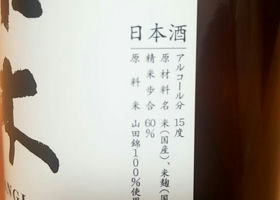 日本酒
アルコール分 15度
原材料名 米(国産)、米麹(国
精米歩合 60%
原料米 山田錦100%使用
木
NGI